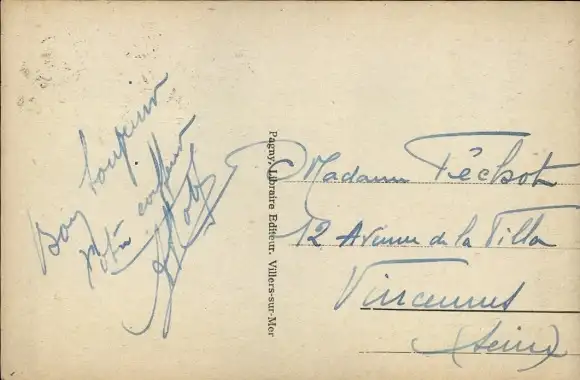 Bon toujours
Votre coiffeur
Pagny, Libraire Editeur, Villers-sur-Mer
Madame Péchot
12 Avenue de la
Vincennes
(Seine)